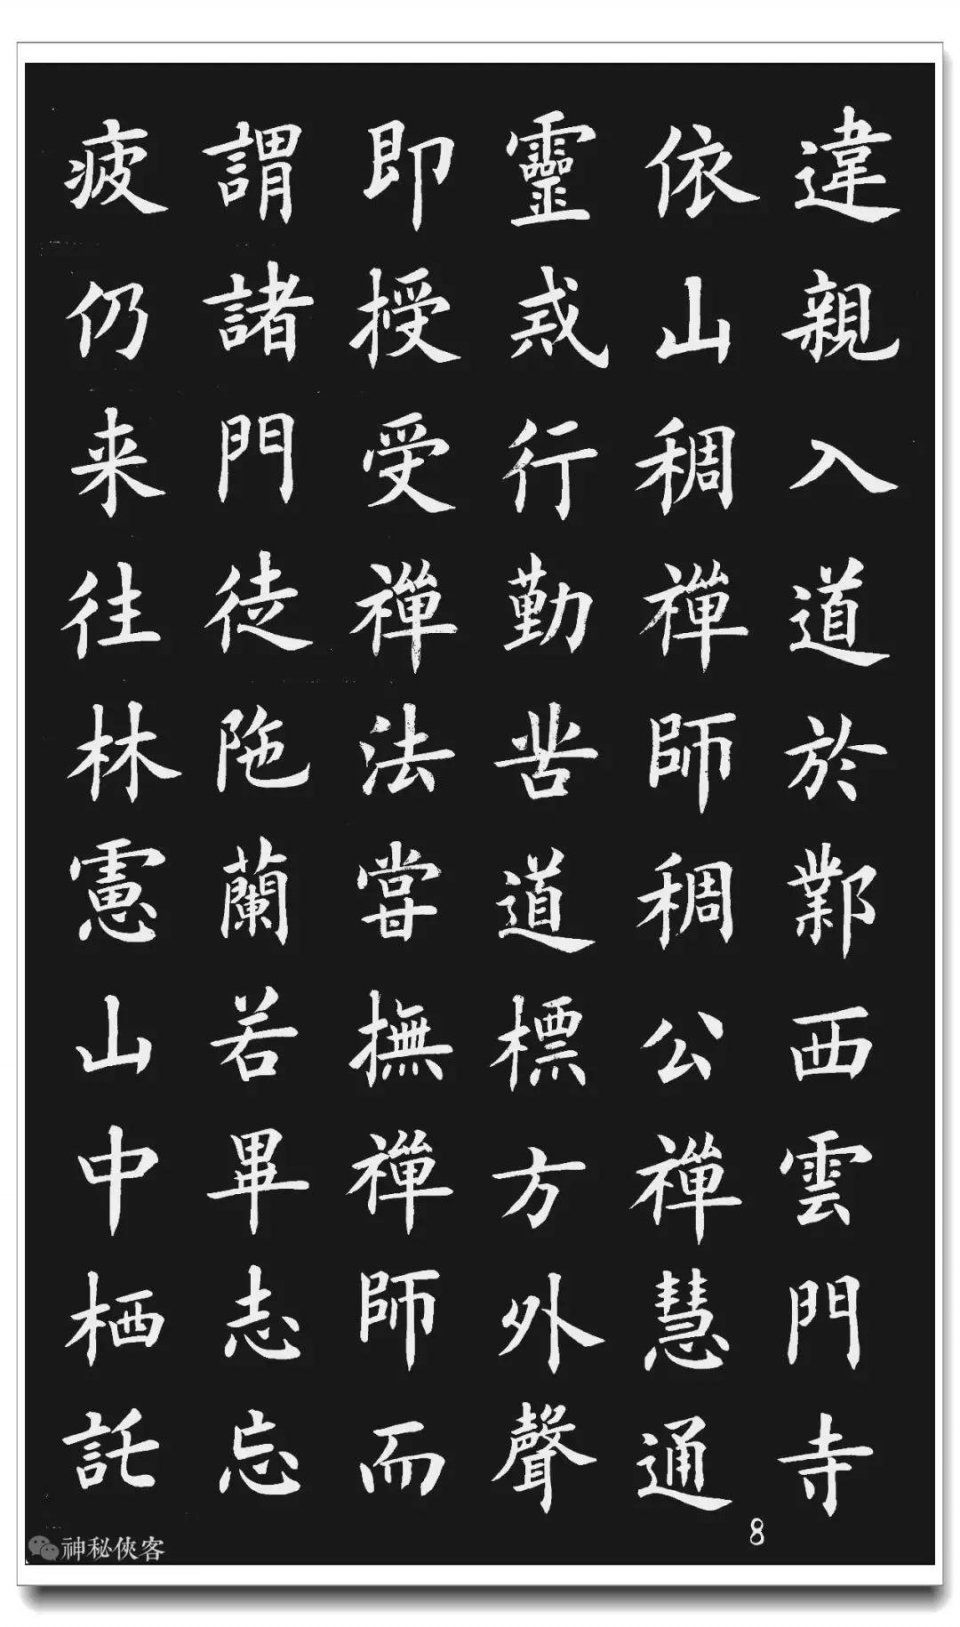 違親入道於鄴西雲門寺
依山稠禪師稠公禪慧通
靈戒行勤苦道標方外聲
即授受禪法嘗撫禪師而
謂諸門徒陁蘭若畢志忘
疲仍来往林慮山中栖託
8
神秘俠客